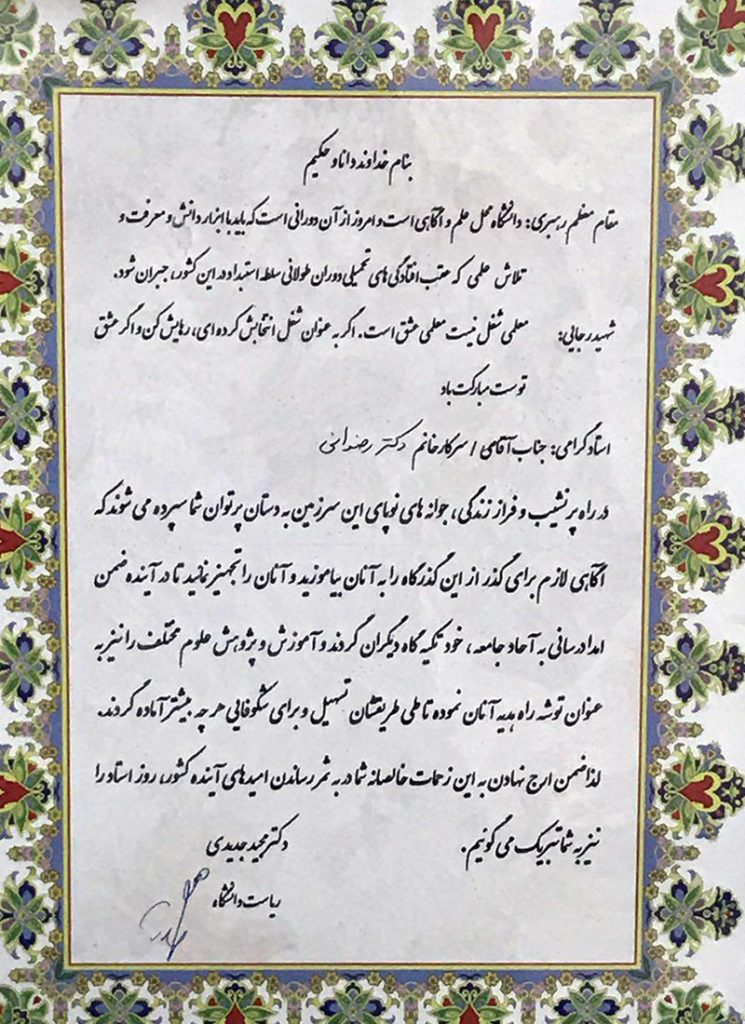 بنام خداوند دانا و حکیم
مقام معظم رهبری: دانشگاه محل علم و آگاهی است و امروز از آن دورانی است که باید با ابزار دانش و معرفت و
تلاش علمی که عقب افتادگی های تحمیلی دوران طولانی سلطه استبداد در این کشور، جبران شود.
شهید رجایی: معلمی شغل نیست معلمی عشق است. اگر به عنوان شغل انتخابش کرده ای، رهایش کن و اگر عشق
توست مبارکت باد
استاد گرامی: جناب آقای / سرکار خانم دکتر رضوانی
در راه پر نشیب و فراز زندگی، جوانه های نوپای این سرزمین به دستان پرتوان شما سپرده می شوند که
آگاهی لازم برای گذر از این گذرگاه را به آنان بیاموزید و آنان را تجهیز نمائید تا در آینده ضمن
امداد رسانی به آحاد جامعه، خود تکیه گاه دیگران گردند و آموزش و پژوهش علوم مختلف را نیز به
عنوان توشه راه هدیه آنان نموده تا طی طریقشان تسهیل و برای شکوفایی هر چه بیشتر آماده گردند.
لذا ضمن ارج نهادن به این زحمات خالصانه شما در به ثمر رساندن امیدهای آینده کشور، روز استاد را
نیز به شما تبریک می گوئیم.
دکتر مجید جدیدی
ریاست دانشگاه